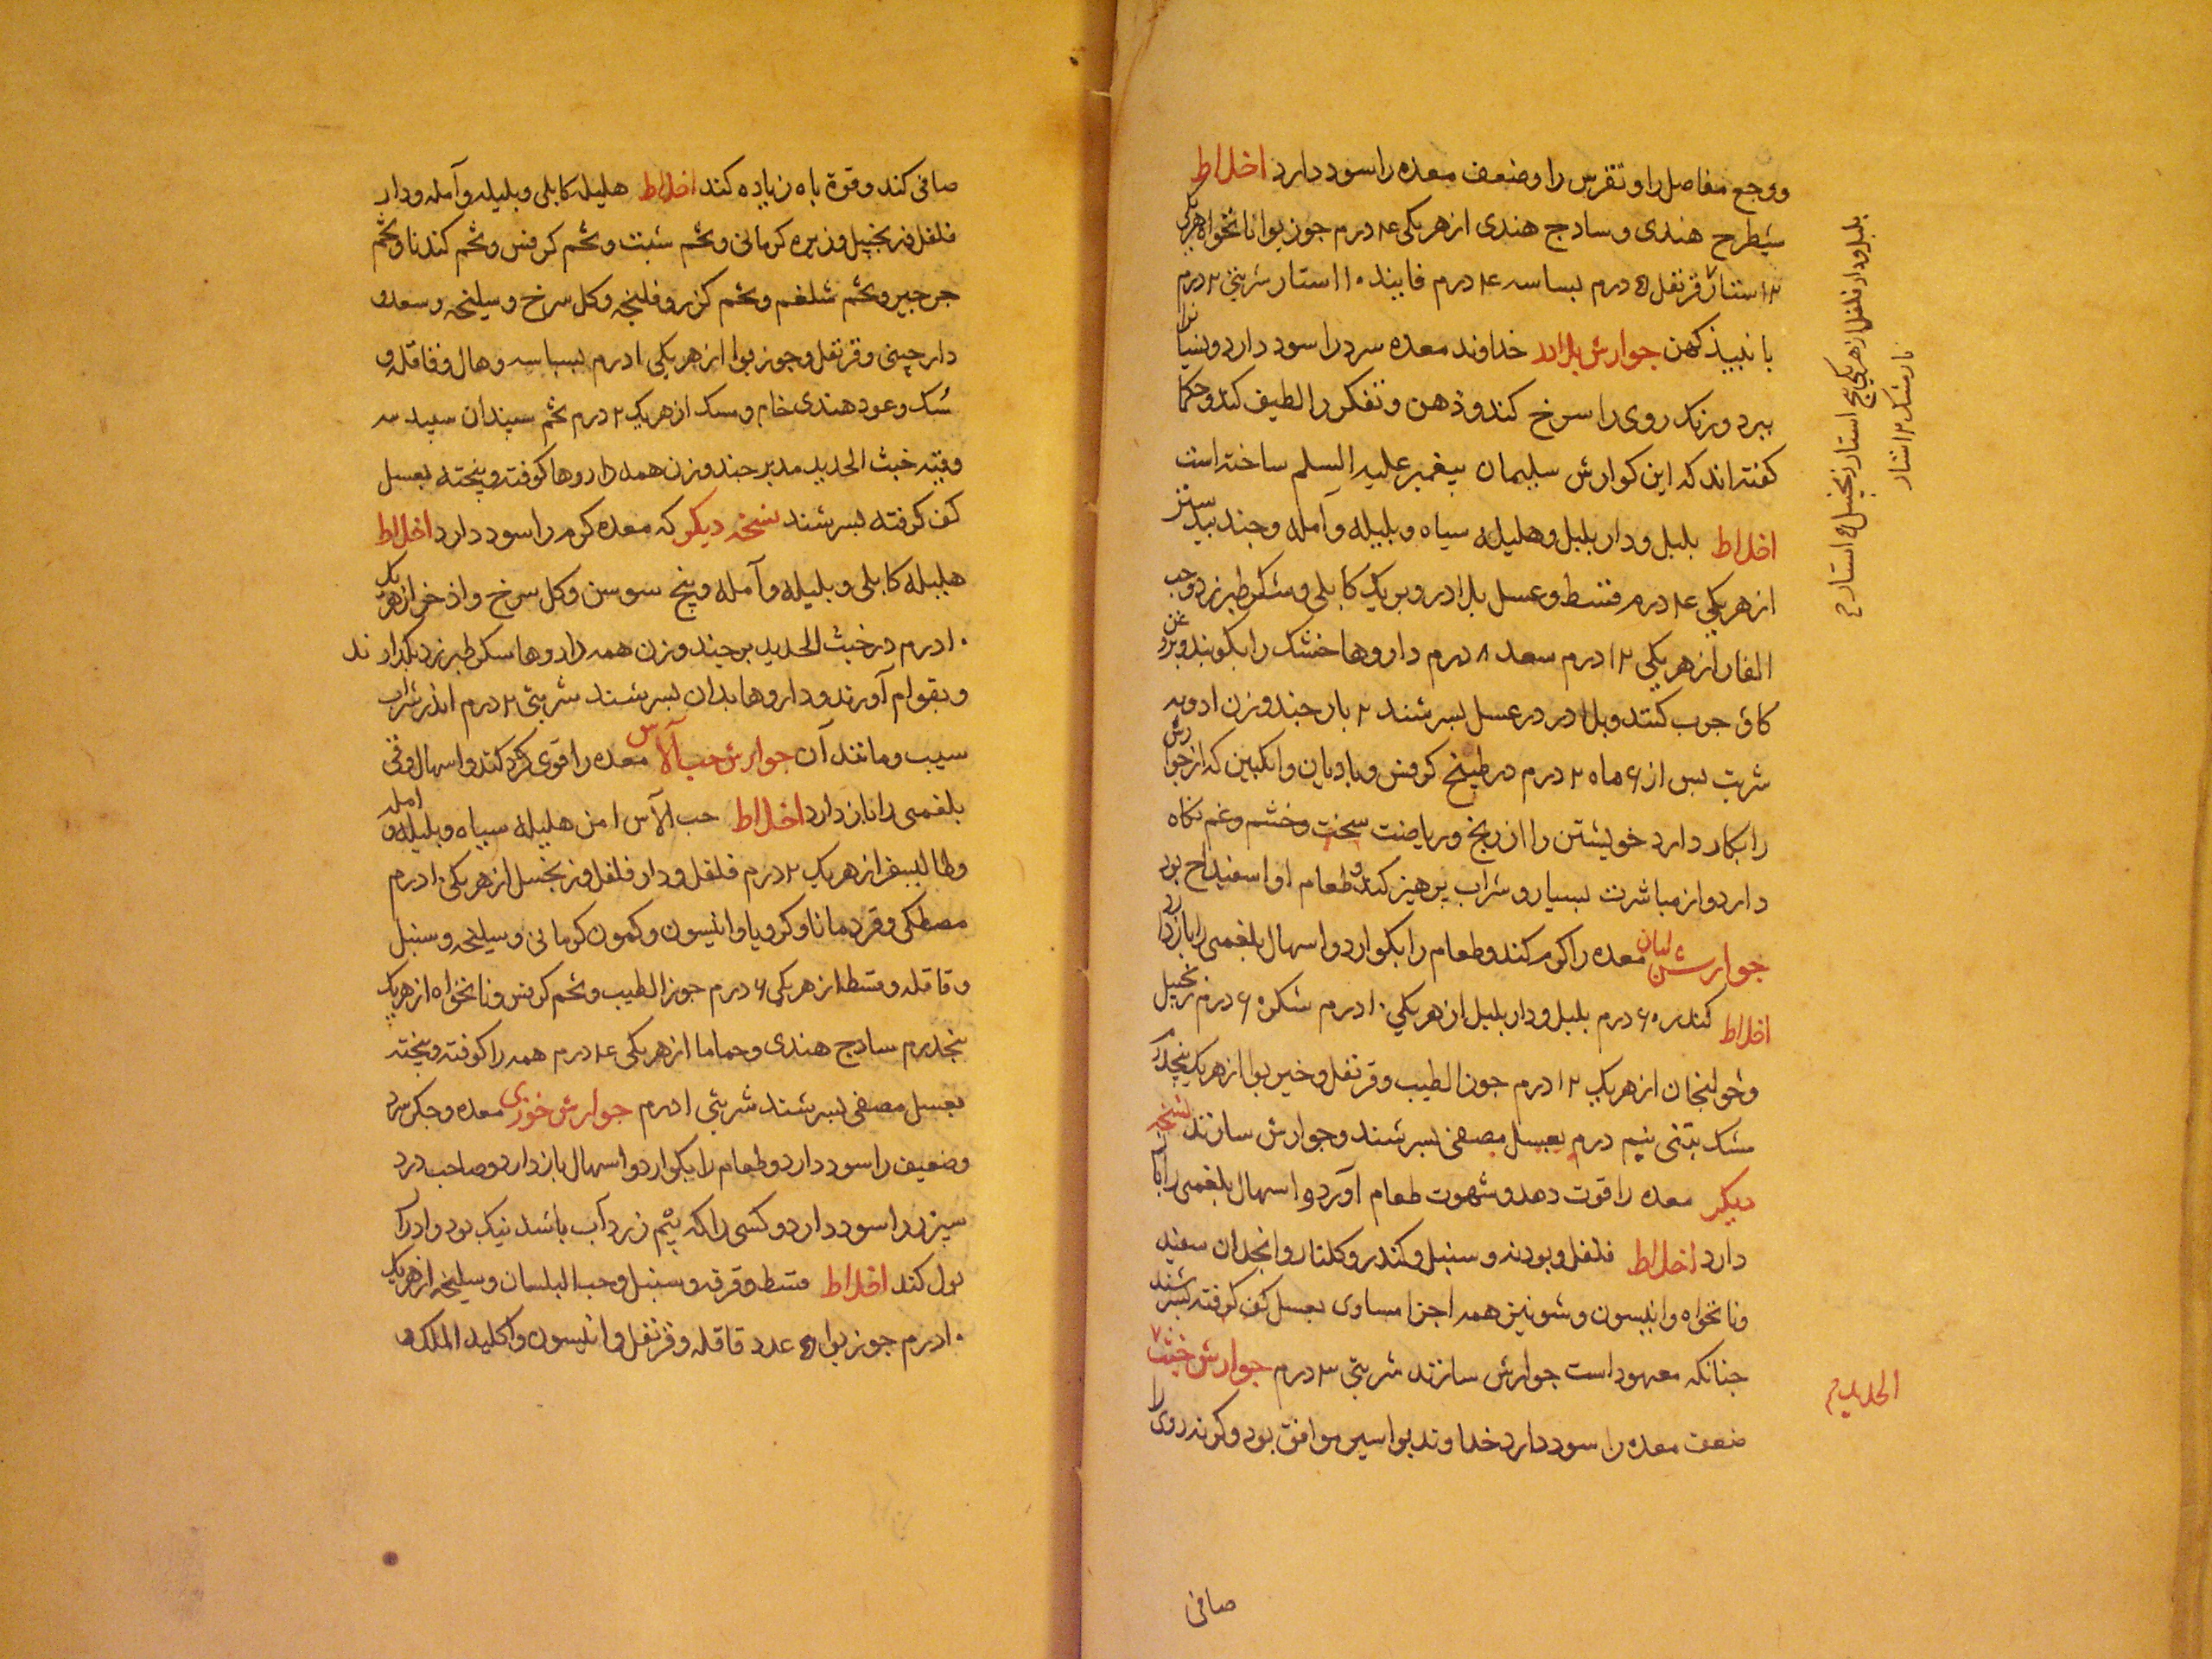 ووجع مفاصل را و نقرس را و ضعف معده را سود دارد اخلاط
شیطرج هندی و ساذج هندی از هر یکی ۴ درم جوز بوا نانخواه هر یکی
۱۲ استار قرنفل ۵ درم بسباسه ۴ درم فانیذ ۱۰ استار شربتی ۲ درم
با نبیذ کهن جوارش بلادر خداوند معده سرد را سود دارد و نسیان را
ببرد و رنک روی را سرخ کند و ذهن و تفکر را لطیف کند و حکما
کفته‌اند که این کوارش سلیمان پیغمبر علیه السلم ساخته است
اخلاط بلبل و دار بلبل و هلیله سیاه و بلیله و آمله و جند بیدستر
از هر یکی ۴ درم قسط و عسل بلادر و برنک کابلی و شکر طبرزد و حب
الغار از هر یکی ۱۲ درم سعد ۸ درم داروها خشک را بکوبند و بروغن
کاو چرب کنند و بلادر در عسل بسرشند ۲ بار چند وزن ادویه
شربت بس از ۶ ماه ۲ درم در طبیخ کرفس و بادیان و انکبین که از جوارش
را بکار دارد خویشتن را از رنج و ریاضت سخت و خشم و غم نکاه
دارد و از مباشرت بسیار و شراب پرهیز کند و طعام او اسفیداج بود
جوارشن لبان معده را کرم کند و طعام را بکوارد و اسهال بلغمی را باز دارد
اخلاط کندر ۶۰ درم بلبل و دار بلبل از هر یکی ۱۰ درم شکر ۶۰ درم زنجبیل
و خولنجان از هر یک ۱۲ درم جوز الطیب و قرنفل و خیربوا از هر یک پنجدرم
مشک تبتی نیم درم بعسل مصفی بسرشند و جوارش سازند نسخه
دیکر معده را قوت دهد و شهوت طعام آورد و اسهال بلغمی را باز
دارد اخلاط فلفل و بودنه و سنبل و کندر و کلنار و انجدان سفید
و نانخواه و انیسون و شونیز همه اجزا مساوی بعسل کف کرفته بسرشند
جنانکه معهود است جوارش سازند شربتی ۳ درم جوارش خبث
ضعف معده را سود دارد خداوند بواسیر موافق بود و کونه روی را
صافی
بلبل و دار فلفل از هر یکی پنج استار زنجبیل ۵ استار
نارمشک ۲ استار
الحدید
صافی کند و قوة باه زیاده کند اخلاط هلیله کابلی و بلیله و آمله و دار
فلفل و زنجبیل و زیره کرمانی و تخم شبت و تخم کرفس و تخم کندنا و تخم
جرجیر و تخم شلغم و تخم کزر و فلنجه و کل سرخ و سلیخه و سعد و
دارچینی و قرنفل و جوز بوا از هر یکی ۱ درم بسباسه و هال و قاقله و
سک و عود هندی خام و مسک از هر یک ۲ درم تخم سپندان سپید سه
وقیه خبث الحدید مدبر چند وزن همه داروها کوفته و بیخته بعسل
کف کرفته بسرشند نسخه دیکر که معده کرم را سود دارد اخلاط
هلیله کابلی و بلیله و آمله و بیخ سوسن و کل سرخ و اذخر از هر یک
۱۰ درم خبث الحدید بر چند وزن همه داروها سکر طبرزد بکدازند
و بقوام آورند و داروها بدان بسرشند شربتی ۲ درم اندر شراب
سیب و مانند آن جوارش حب الآس معده را قوی کرد کند و اسهال و قی
بلغمی را باز دارد اخلاط حب الآس ۱ من هلیله سیاه و بلیله و آمله
و طالیسفر از هر یک ۲ درم فلفل و دار فلفل و زنجبیل از هر یکی ۱۰ درم
مصطکی و قردمانا و کرویا و انیسون و کمون کرمانی و سلیخه و سنبل
و قاقله و قسط از هر یکی ۶ درم جوز الطیب و تخم کرفس و نانخواه از هر یک
پنجدرم ساذج هندی و حماما از هر یکی ۴ درم همه را کوفته و بیخته
بعسل مصفی بسرشند شربتی ۱ درم جوارش خوزی معده و جکر سرد
و ضعیف را سود دارد و طعام را بکوارد و اسهال باز دارد و صاحب درد
سپرز را سود دارد و کسی را که بیم زرد آب باشد نیک بود و ادرار
بول کند اخلاط قسط و قرفه و سنبل و حب البلسان و سلیخه از هر یک
۱۰ درم جوز بوا ۵ عدد قاقله و قرنفل و انیسون و اکلیل الملک و